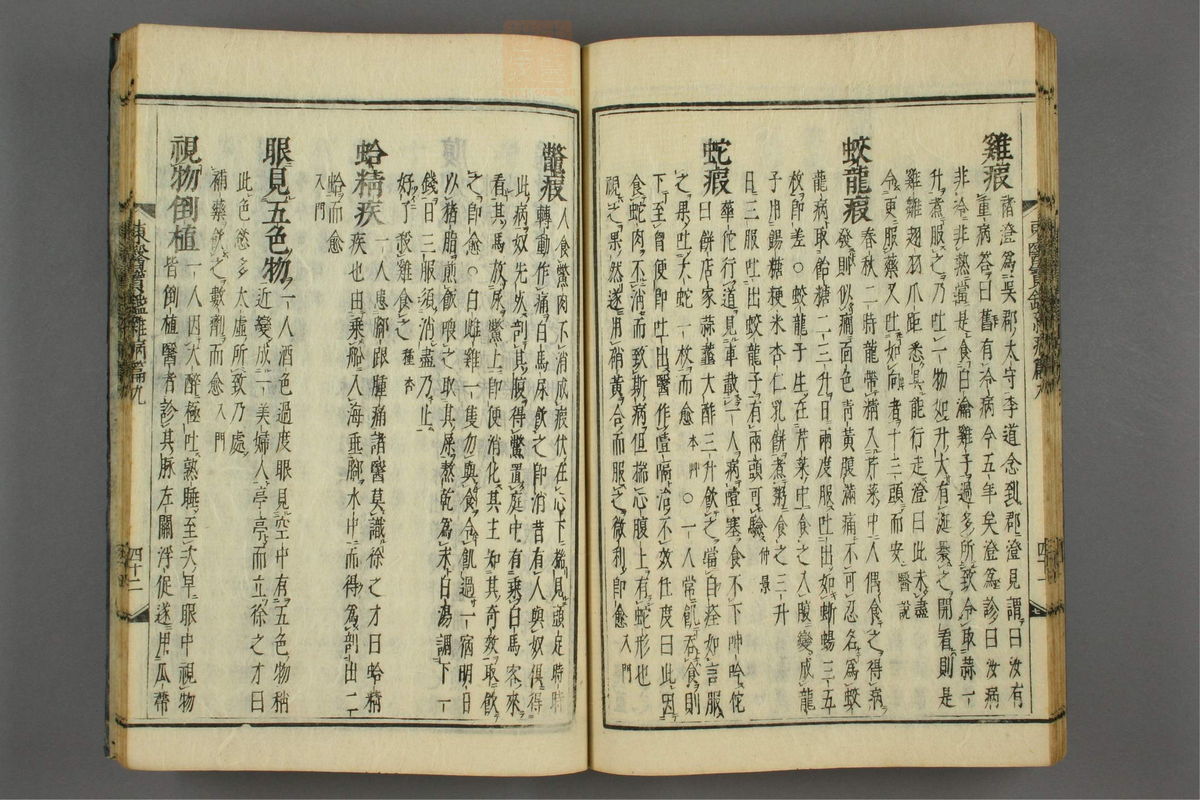 雞瘕 褚澄爲吳郡太守李道念到郡澄見謂曰汝有
重病荅曰舊有冷病今五年矣澄爲診曰汝病
非冷非熱當是食白瀹雞子過多所致令取蒜一
升煮服之乃吐一物如升大有涎裹之開看則是
雞雛翅羽爪距悉具能行走澄曰此未盡
令更服藥又吐如向者十三頭而安 醫說
蛟龍瘕 春秋二時龍帶精入芹菜中人偶食之得病
發則似癎面色青黃腹滿痛不可忍名爲蛟
龍病取飴糖二三升日兩度服吐出如蜥蜴三五
枚卽差○蛟龍子生在芹菜中食之入腹變成龍
子用餳糖粳米杏仁乳餅煮粥食之三升
日三服吐出蛟龍子有兩頭可驗 仲景
蛇瘕 華佗行道見車載一人病噎塞食不下呻吟佗
曰餅店家蒜虀大酢三升飲之當自痊如言服
之果吐大蛇一枚而愈 本艸 ○一人常飢吞食則
下至胷便卽吐出醫作噎嗝治不效任度曰此因
食蛇肉不消而致斯病但揣心腹上有蛇形也
視之果然遂用硝黃合而服之微利卽愈 入門
鱉瘕 人食鱉肉不消成瘕伏在心下摸見頭足時時
轉動作痛白馬尿飲之卽消昔有人與奴俱得
此病奴先死剖其腹得鱉置庭中有乘白馬客來
看其馬放尿鱉上卽便消化其主知其奇效取飲
之卽愈○白雌雞一隻勿與食令飢過一宿明日
以猪脂煎飯喂之取其屎熬乾爲末白湯調下一
錢日三服須消盡乃止
好了殺雞食之 種杏
蛤精疾 一人患腳跟腫痛諸醫莫識徐之才曰蛤精
疾也由乘船入海垂腳水中而得爲剖出二
蛤而愈
入門
眼見五色物 一人酒色過度眼見空中有五色物稍
近變成一美婦人亭亭而立徐之才曰
此色慾多太虛所致乃處
補藥飲之數劑而愈 入門
視物倒植 一人因大醉極吐熟睡至天早眼中視物
皆倒植醫者診其脉左關浮促遂用瓜蒂
東醫寶鑑雜病篇九
四十二